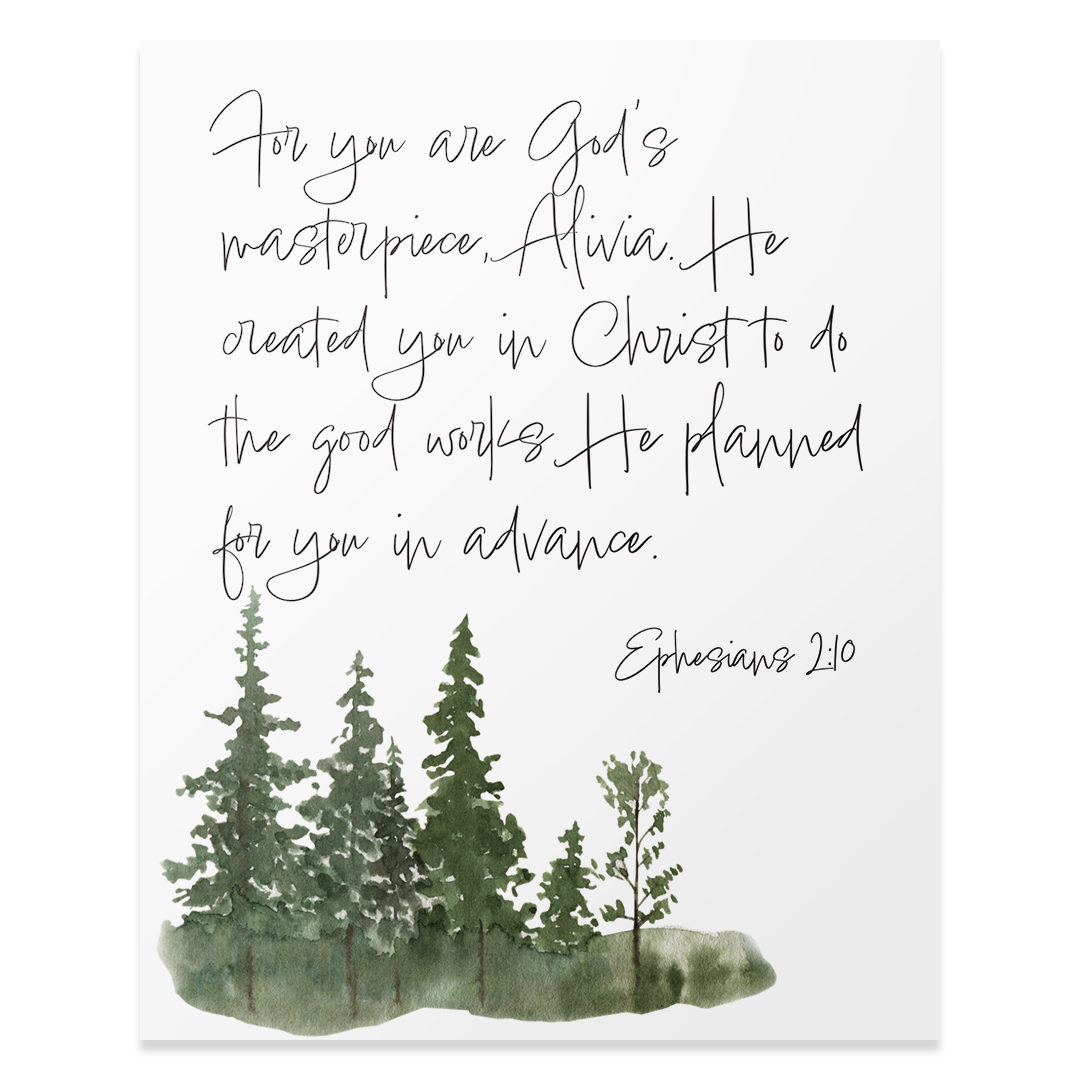 For you are God's
masterpiece, Alivia. He
created you in Christ to do
the good works He planned
for you in advance.
Ephesians 2:10